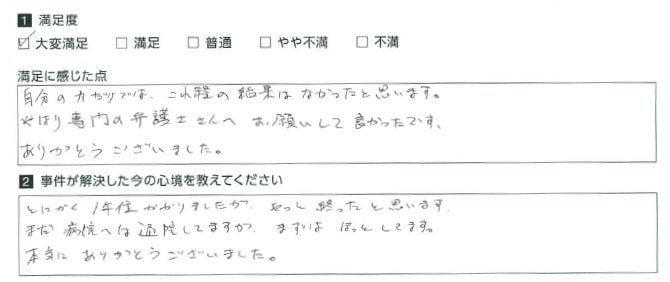 1 満足度
☑ 大変満足 □ 満足 □ 普通 □ やや不満 □ 不満
満足に感じた点
自分の力だけでは、これ程の結果はなかったと思います。
やはり専門の弁護士さんへ お願いして良かったです、
ありがとうございました。
2 事件が解決した今の心境を教えてください
とにかく 1年位かかりましたが、やっと終ったと思います。
まだ 病院へは通院してますが、まずは ほっとしてます。
本当に ありがとうございました。